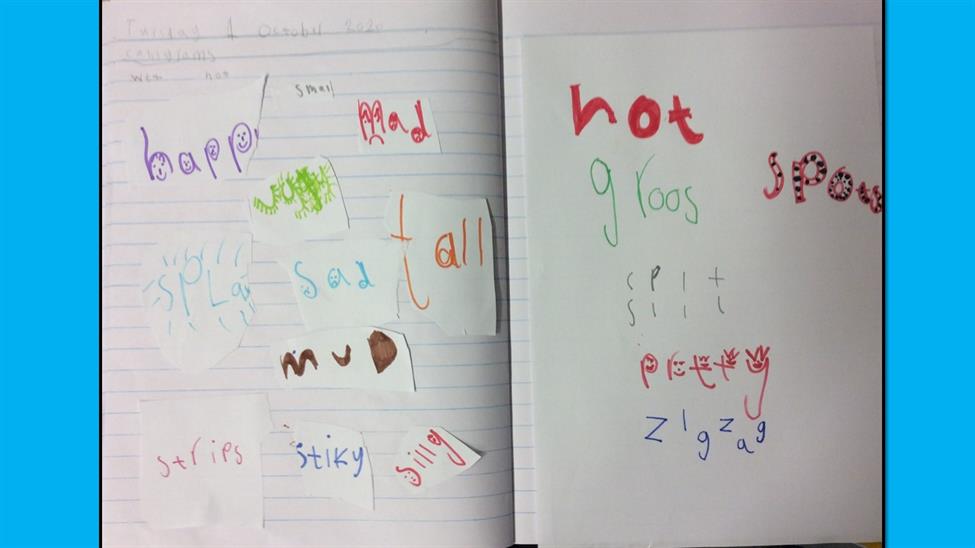 Tuesday October 2020
caligrams
wet hot
small
happ
mad
tall
SPLa
sad
muD
strips
stiky
silly
hot
groos
spot
split
pretty
zigzag